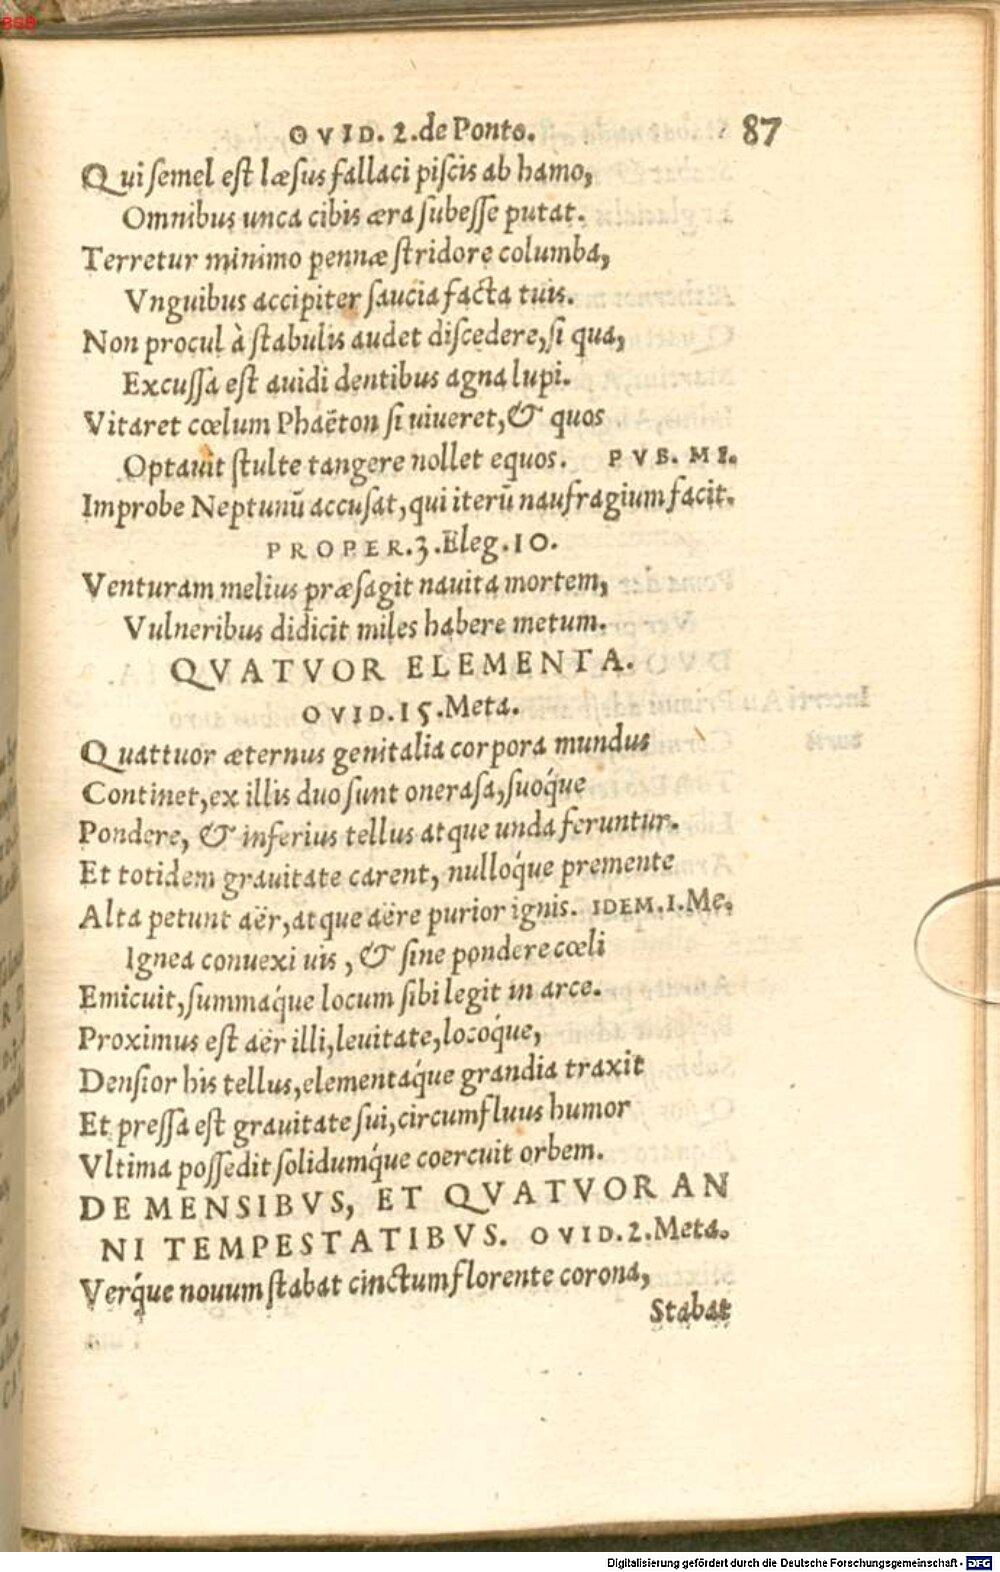 OVID. 2. de Ponto. 87
Qui semel est læsus fallaci piscis ab hamo,
Omnibus unca cibis æra subesse putat.
Terretur minimo pennæ stridore columba,
Vnguibus accipiter saucia facta tuis.
Non procul à stabulis audet discedere, si qua,
Excussa est auidi dentibus agna lupi.
Vitaret cœlum Phaëton si uiueret, & quos
Optauit stulte tangere nollet equos. PVB. MI.
Improbe Neptunū accusat, qui iterū naufragium facit.
PROPER. 3. Eleg. 10.
Venturam melius præsagit nauita mortem,
Vulneribus didicit miles habere metum.
QVATVOR ELEMENTA.
OVID. 15. Meta.
Quattuor æternus genitalia corpora mundus
Continet, ex illis duo sunt onerasa, suóque
Pondere, & inferius tellus atque unda feruntur.
Et totidem grauitate carent, nullóque premente
Alta petunt aër, atque aëre purior ignis. IDEM. 1. Me.
Ignea conuexi uis, & sine pondere cœli
Emicuit, summáque locum sibi legit in arce.
Proximus est aër illi, leuitate, locóque,
Densior his tellus, elementáque grandia traxit
Et pressa est grauitate sui, circumfluus humor
Vltima possedit solidumq́ue coercuit orbem.
DE MENSIBVS, ET QVATVOR AN
NI TEMPESTATIBVS. OVID. 2. Meta.
Verq́ue nouum stabat cinctum florente corona,
Stabat
Digitalisierung gefördert durch die Deutsche Forschungsgemeinschaft - DFG